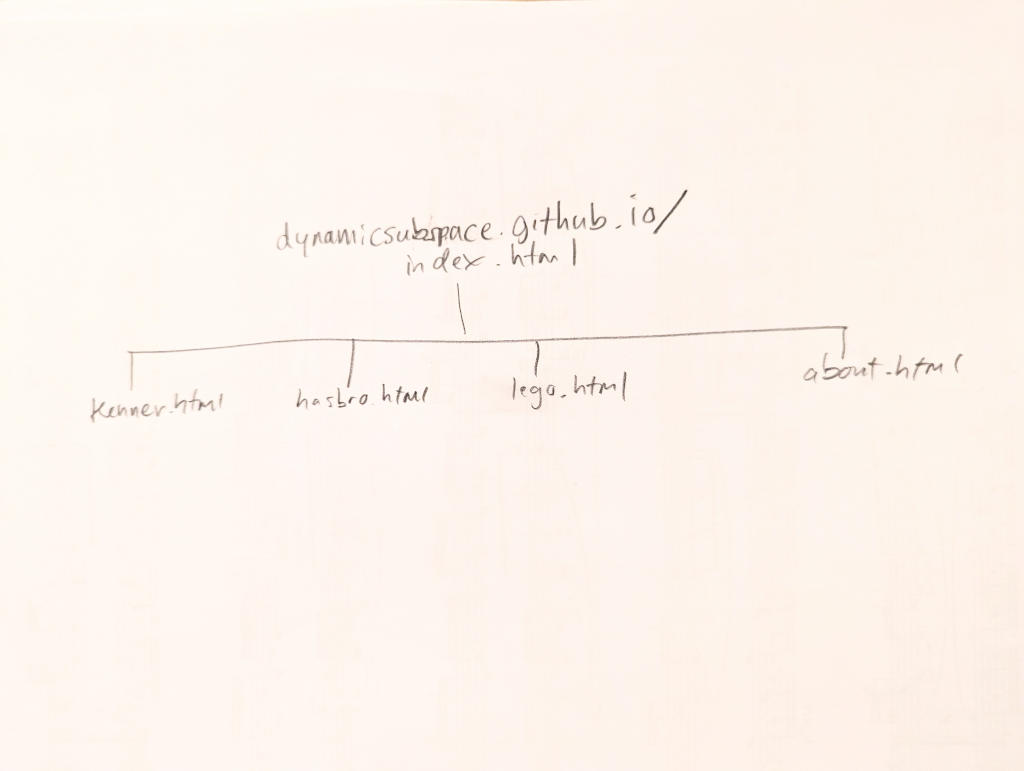 dynamicsubspace.github.io/
index.html
kenner.html hasbro.html lego.html about.html